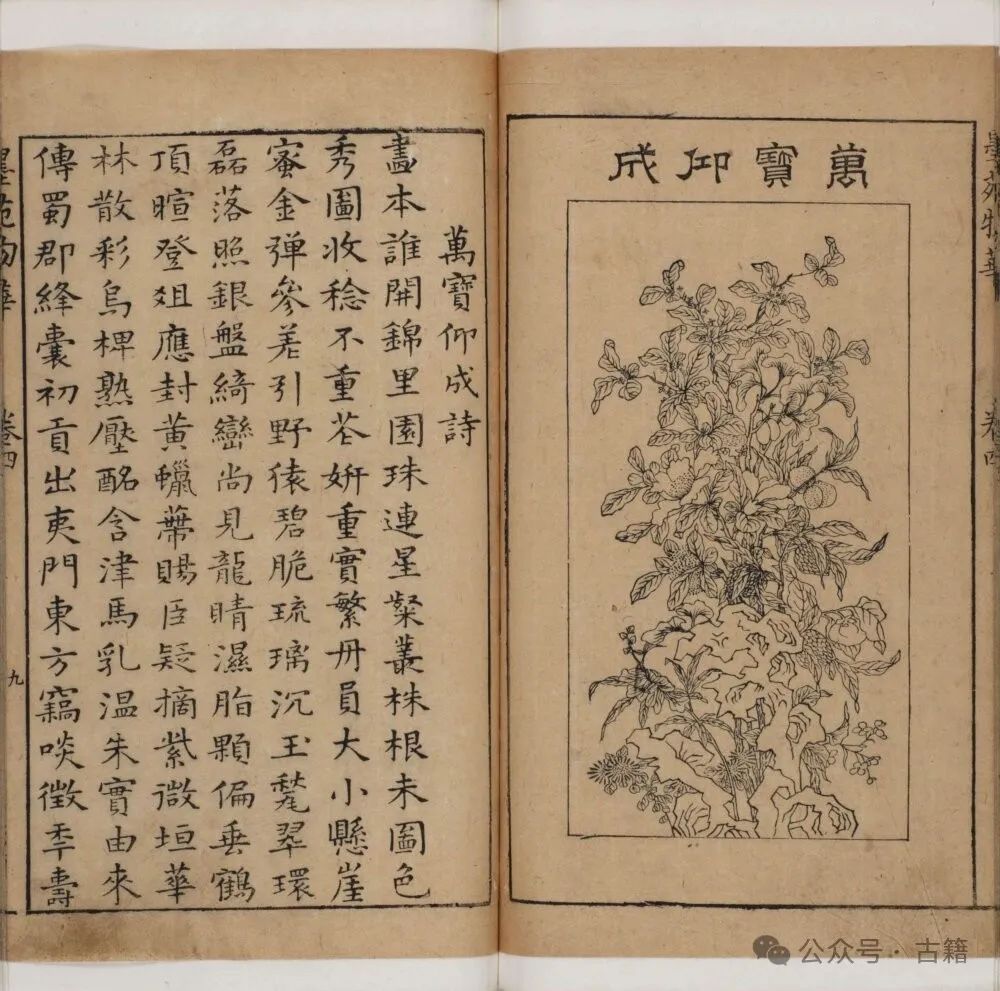 萬寶仰成
墨苑物華 卷四
萬寶仰成詩
畫本誰開錦里園珠連星粲叢株根未圖色
秀圖收稔不重花妍重實繁丹員大小懸崖
蜜金彈參差引野猿碧脆琉璃沉玉甃翠環
磊落照銀盤綺巒尚見龍睛濕脂顆偏垂鶴
頂暄登俎應封黃蠟蔕賜臣疑摘紫微垣華
林散彩烏椑熟壓酩含津馬乳溫朱實由來
傳蜀郡絳囊初貢出夷門東方竊啖徵秊壽
墨苑物華 卷四 九
公众号 · 古籍